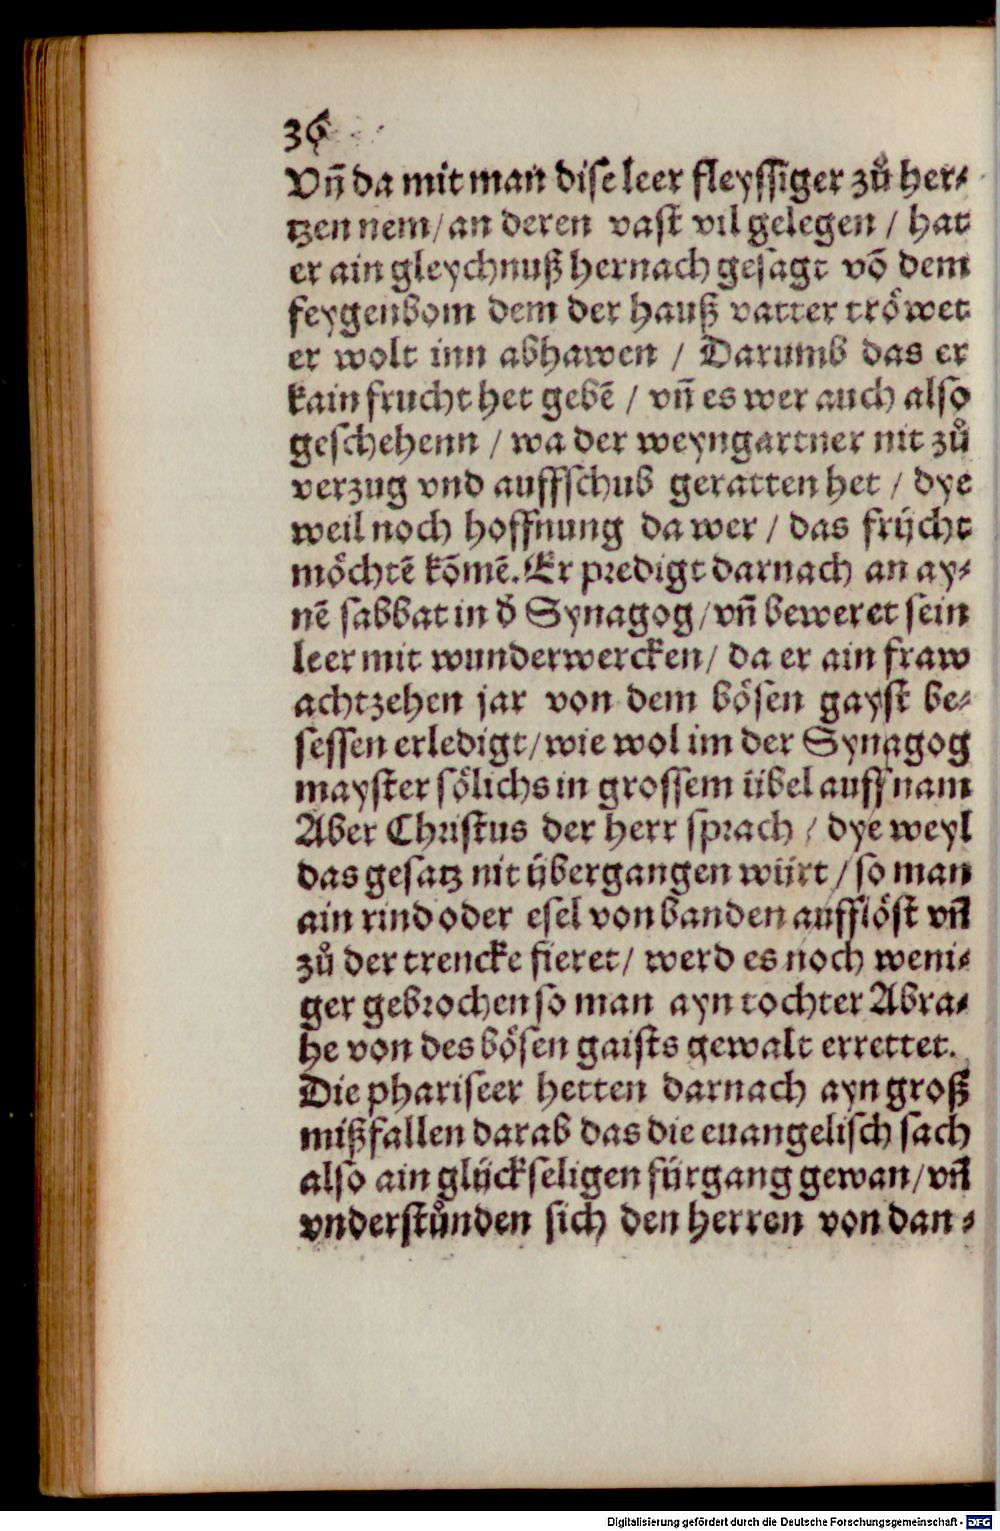 36
Vñ da mit man dise leer fleyssiger zů her⸗
tzen nem/an deren vast vil gelegen / hat
er ain gleychnuß hernach gesagt võ dem
feygenbom dem der hauß vatter tröwet
er wolt inn abhawen / Darumb das er
kain frucht het gebẽ / vñ es wer auch also
geschehenn / wa der weyngartner nit zů
verzug vnd auffschub geratten het / dye
weil noch hoffnung da wer / das frücht
möchtẽ kõmẽ. Er predigt darnach an ay⸗
nẽ sabbat in d̾ Synagog/vñ beweret sein
leer mit wunderwercken/ da er ain fraw
achtzehen jar von dem bösen gayst be⸗
sessen erledigt/wie wol im der Synagog
mayster sölichs in grossem übel auffnam
Aber Christus der herr sprach / dye weyl
das gesatz nit übergangen würt / so man
ain rind oder esel von banden aufflöst vñ
zů der trencke fieret/ werd es noch weni⸗
ger gebrochen so man ayn tochter Abra⸗
he von des bösen gaists gewalt errettet.
Die phariseer hetten darnach ayn groß
mißfallen darab das die euangelisch sach
also ain glückseligen fürgang gewan/vñ
vnderstůnden sich den herren von dan⸗
Digitalisierung gefördert durch die Deutsche Forschungsgemeinschaft - DFG